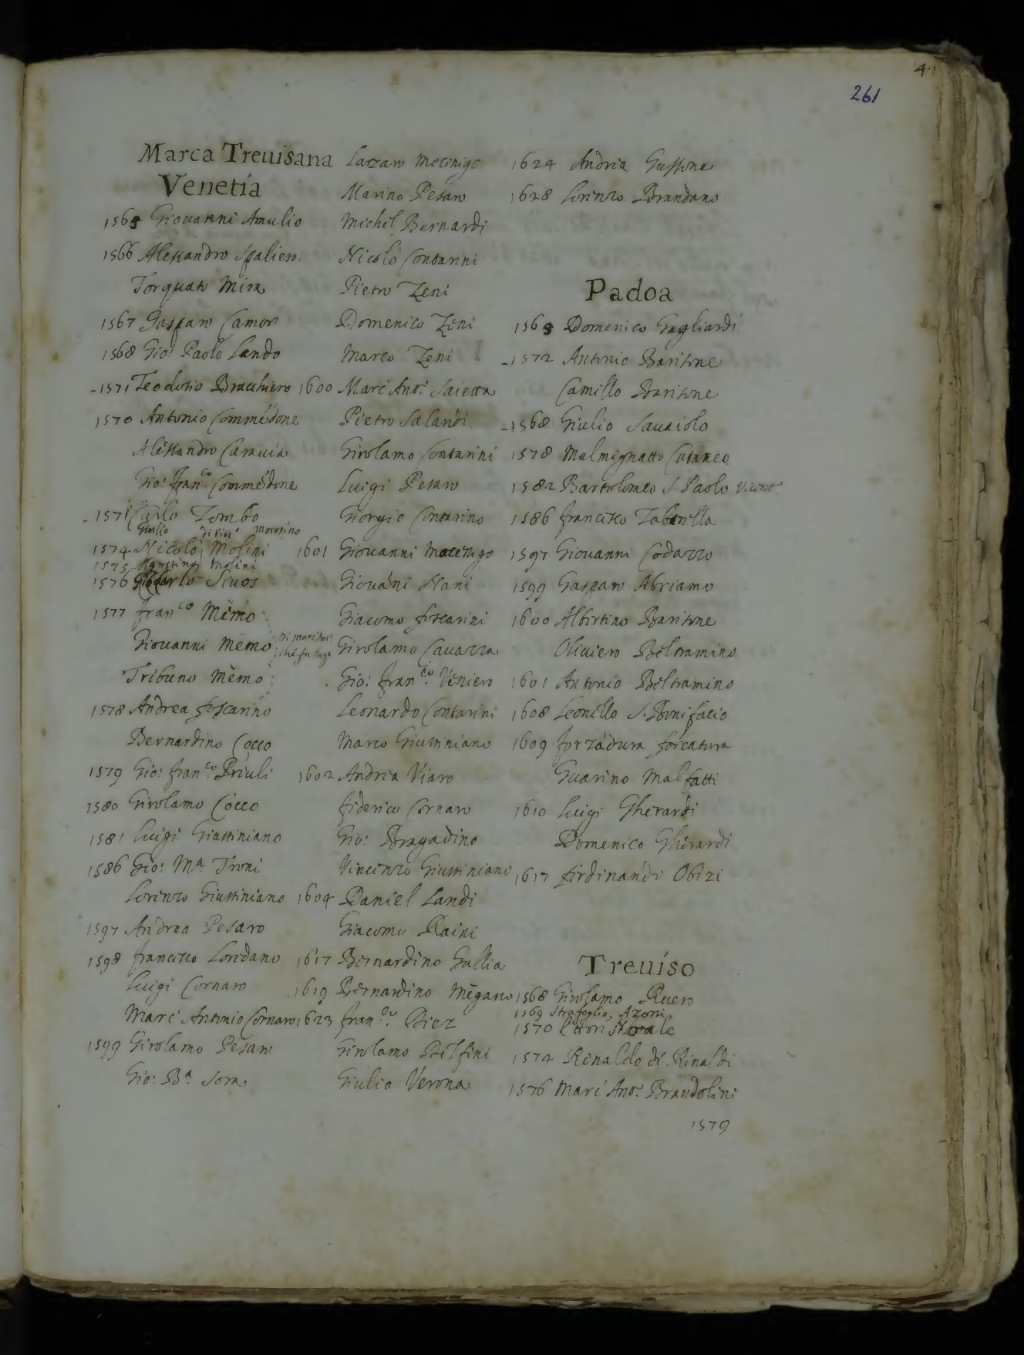 261
Marca Treuisana
Venetia
1565 Giouanni Amulio
1566 Alessandro Spaliero.
Torquato Mira
1567 Gasparo Camor
1568 Gio: Paolo Lando
1571 Teodosio Bracchiero
1570 Antonio Commēdone
Alessandro Carauia
Gio: Franco Commēdone
1571 Carlo Zombo
Giulio di Vinco Morosino
1574 Nicolò Molini
1575 Agostino Molini
1576 Carlo Siuos
1577 Franco Mēmo
Giouanni Mēmo
Tribuno Mēmo
1578 Andrea Foscarino
Bernardino Cocco
1579 Gio: Franco Priuli
1580 Girolamo Cocco
1581 Luigi Giustiniano
1586 Gio: Ma Troni
Lorenzo Giustiniano
1597 Andrea Pesaro
1598 Francesco Loredano
Luigi Cornaro
Marc' Antonio Cornaro
1599 Girolamo Pesaro
Gio: Ba Sora
Lazaro Mocenigo
Marino Pesaro
Michiel Bernardi
Nicolò Contarini
Pietro Zeni
Domenico Zeni
Marco Zeni
1600 Marc' Anto Saietta
Pietro Salandi
Girolamo Contarini
Luigi Pesaro
Giorgio Contarino
1601 Giouanni Mocenigo
Giouāni Nani
Giacomo Foscarini
Girolamo Cauazza
Gio: Franco Veniero
Leonardo Contarini
Marco Giustiniano
1602 Andrea Viaro
Federico Cornaro
Gio: Bragadino
Vincenzo Giustiniani
1604 Daniel Landi
Giacomo Raini
1617 Bernardino Gallia
1619 Bernardino Mēgano
1623 Franco Biez
Girolamo Stilfini
Giulio Verona
1624 Andrea Gussone
1628 Lorenzo Brandano
Padoa
1565 Domenico Gagliardi
1572 Antonio Baritone
Camillo Baritone
1568 Giulio Sauaiolo
1578 Malmignatto Cataneo
1582 Bartolomeo S. Paolo
1586 Francesco Zabarella
1597 Giouanni Codazzo
1599 Gasparo Abriamo
1600 Albertino Baritone
Oliuiero Beltramino
1601 Antonio Beltramino
1608 Leonello S. Bonifacio
1609 Forzadura Forcatura
Guarino Malfatti
1610 Luigi Gherardi
Domenico Gherardi
1617 Ferdinando Obizi
Treuiso
1568 Girolamo Ruero
1569 Azoni
1570 Ettore
1574 Rinaldo di Rinaldi
1576 Marc' Anto Brandolini
1579